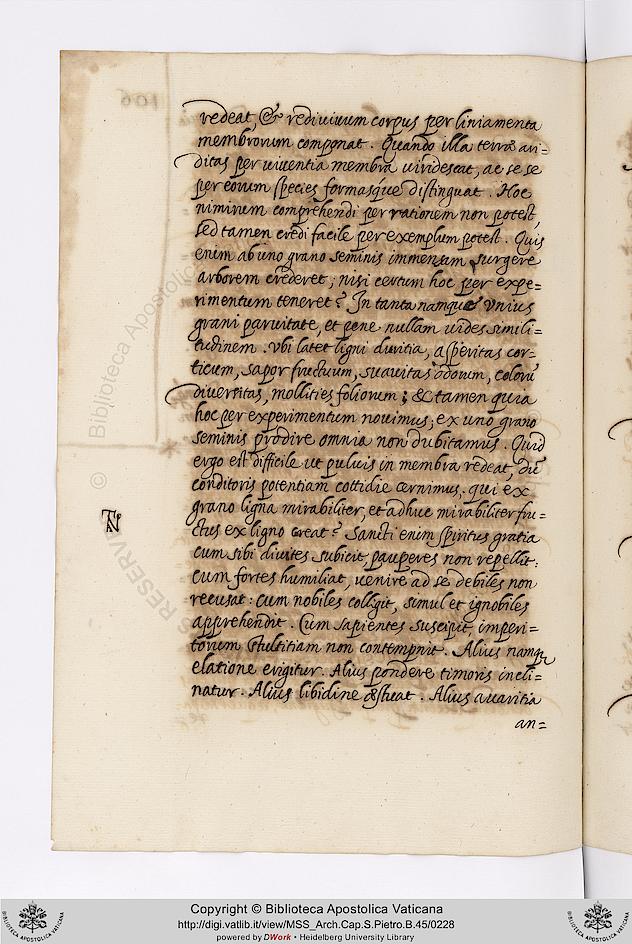 redeat, & rediviuum corpus per liniamenta
membrorum componat. Quando illa terræ ari=
ditas per viventia membra viridescat, ac se se
per eorum species formasq́ue distinguat. Hoc
nimirum comprehendi per rationem non potest,
sed tamen credi facile per exemplum potest. Quis
enim ab uno grano seminis immensam surgere
arborem crederet; nisi certum hoc per expe=
rimentum teneret? In tanta namque unius
grani paruitate, et pene nullam vides simili=
tudinem. Vbi latet ligni duritia, asperitas cor=
ticum, sapor fructuum, suavitas odorum, colorū
diversitas, mollities foliorum; & tamen quia
hoc per experimentum novimus; ex uno grano
seminis prodire omnia non dubitamus. Quid
ergo est difficile ut pulvis in membra redeat, dū
conditoris potentiam cottidie cernimus. qui ex
grano ligna mirabiliter, et adhuc mirabiliter fru=
ctus ex ligno creat? Sancti enim spiritus gratia
cum sibi divites subicit, pauperes non repellit:
Cum fortes humiliat, venire ad se debiles non
recusat: cum nobiles colligit, simul et ignobiles
apprehendit. Cum sapientes suscipit, imperi=
torum stultitiam non contempnit. Alius namq;
elatione erigitur. Alius pondere timoris incli=
natur. Alius libidine æstuat. Alius avaritia
an=
106
© Biblioteca Apostolica
Copyright © Biblioteca Apostolica Vaticana
http://digi.vatlib.it/view/MSS_Arch.Cap.S.Pietro.B.45/0228
powered by DWork • Heidelberg University Library
BIBLIOTECA APOSTOLICA VATICANA
BIBLIOTECA APOSTOLICA VATICANA